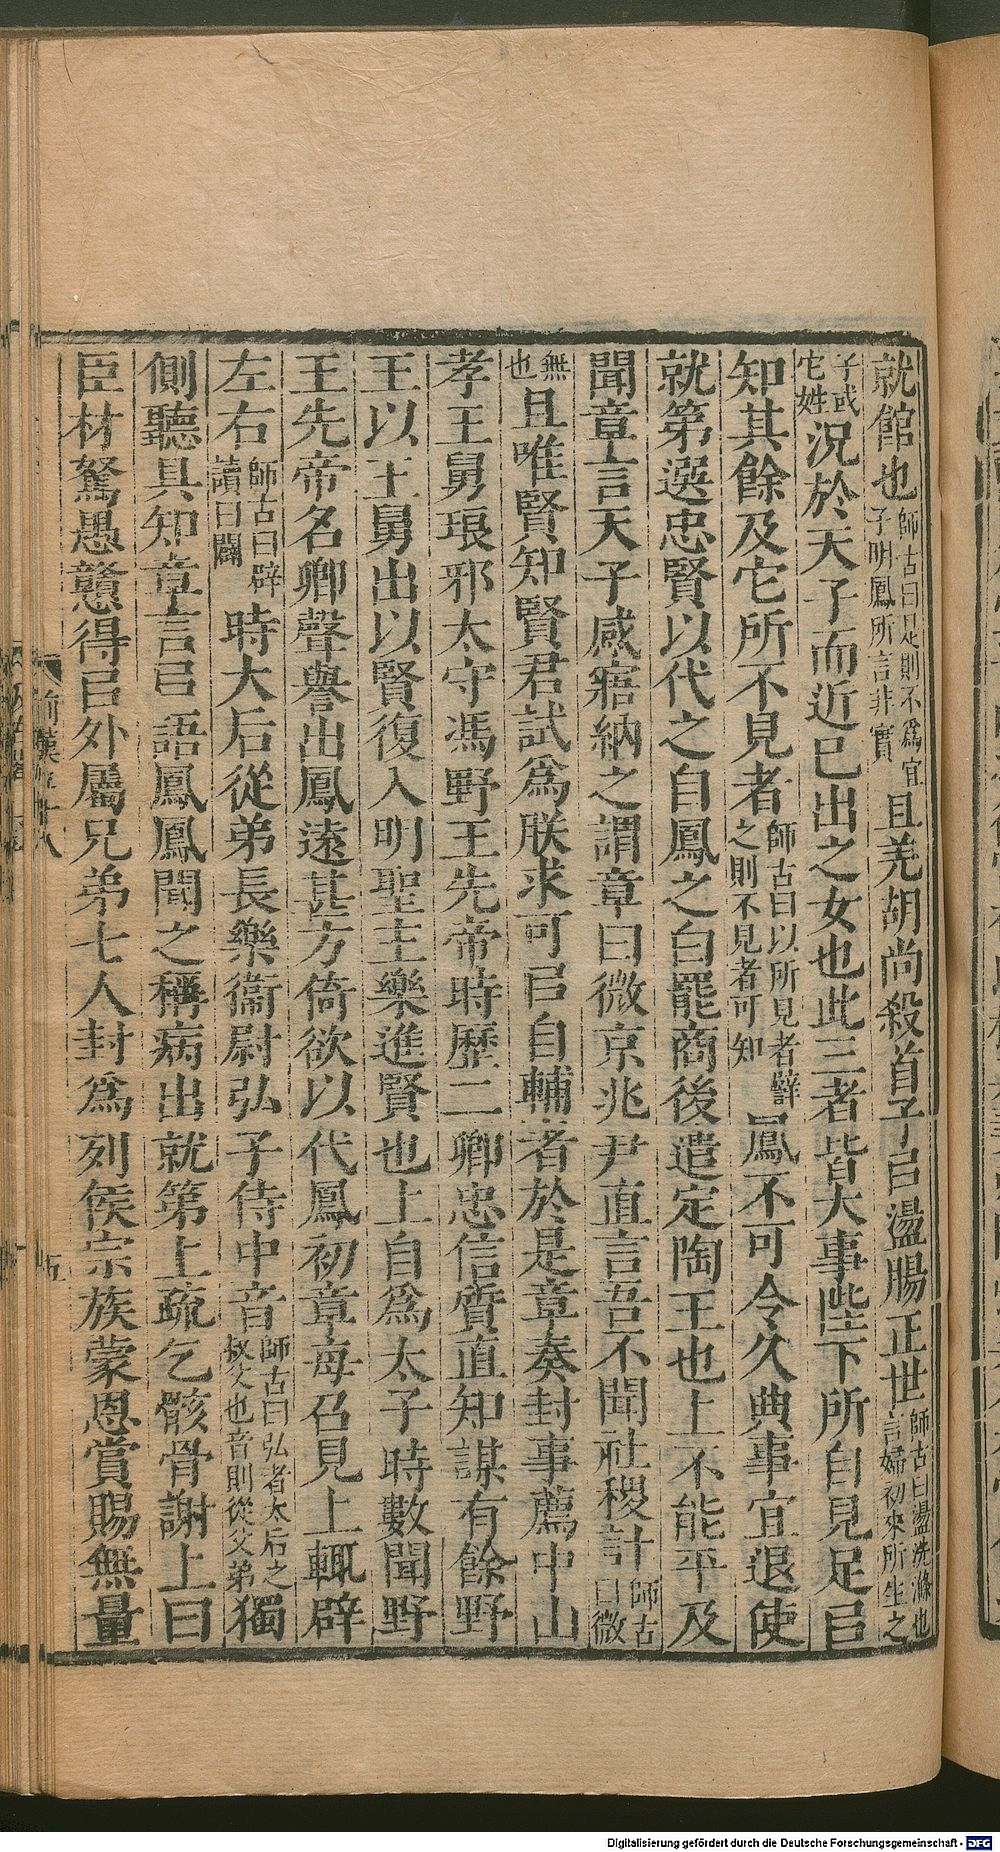 就館也師古曰是則不爲宜子明鳳所言非實且羌胡尚殺首子㠯盪腸正世師古曰盪洗滌也言婦初來所生之
子或它姓況於天子而近已出之女也此三者皆大事陛下所自見足㠯
知其餘及它所不見者師古曰以所見者譬之則不見者可知鳳不可令久典事宜退使
就第選忠賢以代之自鳳之白罷商後遣定陶王也上不能平及
聞章言天子感寤納之謂章曰微京兆尹直言吾不聞社稷計師古曰微
無也且唯賢知賢君試爲朕求可㠯自輔者於是章奏封事薦中山
孝王舅琅邪太守馮野王先帝時歷二卿忠信質直知謀有餘野
王以王舅出以賢復入明聖主樂進賢也上自爲太子時數聞野
王先帝名卿聲譽出鳳遠甚方倚欲以代鳳初章每召見上輒辟
左右師古曰辟讀曰闢時大后從弟長樂衞尉弘子侍中音師古曰弘者太后之叔父也音則從父弟獨
側聽具知章言㠯語鳳鳳聞之稱病出就第上疏乞骸骨謝上曰
臣材駑愚戇得㠯外屬兄弟七人封爲列侯宗族蒙恩賞賜無量
Digitalisierung gefördert durch die Deutsche Forschungsgemeinschaft - DFG